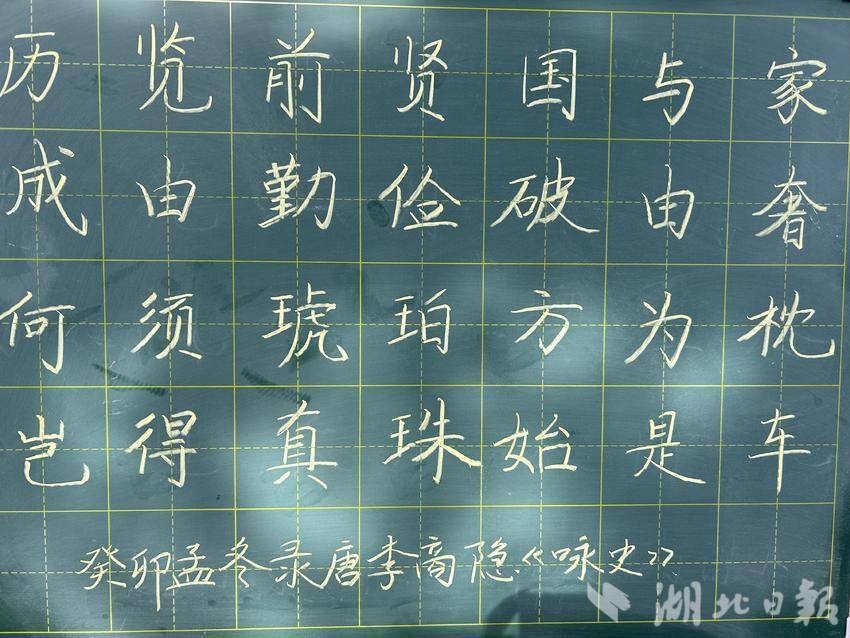 历览前贤国与家
成由勤俭破由奢
何须琥珀方为枕
岂得真珠始是车
癸卯孟冬录唐李商隐《咏史》
湖北日报